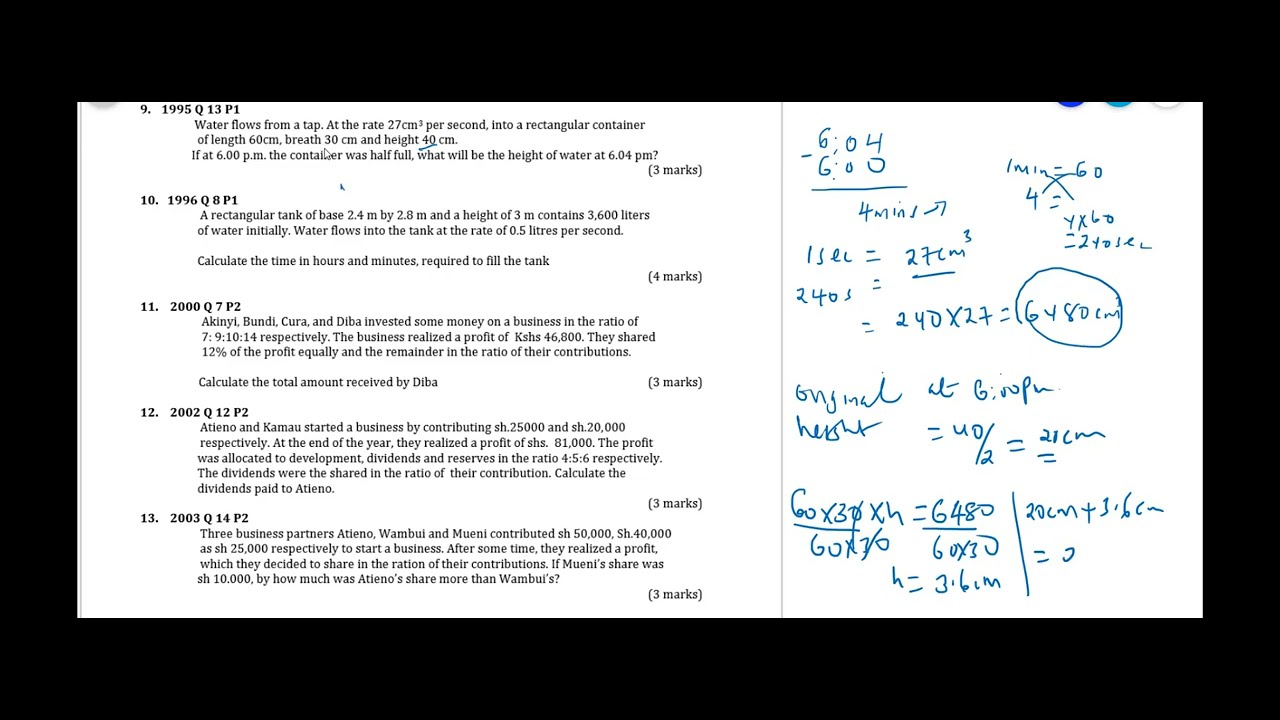 9. 1995 Q 13 P1
Water flows from a tap. At the rate 27cm³ per second, into a rectangular container
of length 60cm, breath 30 cm and height 40 cm.
If at 6.00 p.m. the container was half full, what will be the height of water at 6.04 pm?
(3 marks)
10. 1996 Q 8 P1
A rectangular tank of base 2.4 m by 2.8 m and a height of 3 m contains 3,600 liters
of water initially. Water flows into the tank at the rate of 0.5 litres per second.
Calculate the time in hours and minutes, required to fill the tank
(4 marks)
11. 2000 Q 7 P2
Akinyi, Bundi, Cura, and Diba invested some money on a business in the ratio of
7: 9:10:14 respectively. The business realized a profit of Kshs 46,800. They shared
12% of the profit equally and the remainder in the ratio of their contributions.
Calculate the total amount received by Diba (3 marks)
12. 2002 Q 12 P2
Atieno and Kamau started a business by contributing sh.25000 and sh.20,000
respectively. At the end of the year, they realized a profit of shs. 81,000. The profit
was allocated to development, dividends and reserves in the ratio 4:5:6 respectively.
The dividends were the shared in the ratio of their contribution. Calculate the
dividends paid to Atieno.
(3 marks)
13. 2003 Q 14 P2
Three business partners Atieno, Wambui and Mueni contributed sh 50,000, Sh.40,000
as sh 25,000 respectively to start a business. After some time, they realized a profit,
which they decided to share in the ration of their contributions. If Mueni's share was
sh 10.000, by how much was Atieno's share more than Wambui's?
(3 marks)
6:04
- 6:00
4mins →
1min = 60
4 =
4x60
=240sec
1sec = 27cm³
240s =
= 240x27 = 6480cm³
original at 6:00pm
height = 40/2 = 20cm
60x30xh = 6480
60x30 60x30
h = 3.6cm
20cm + 3.6cm
=